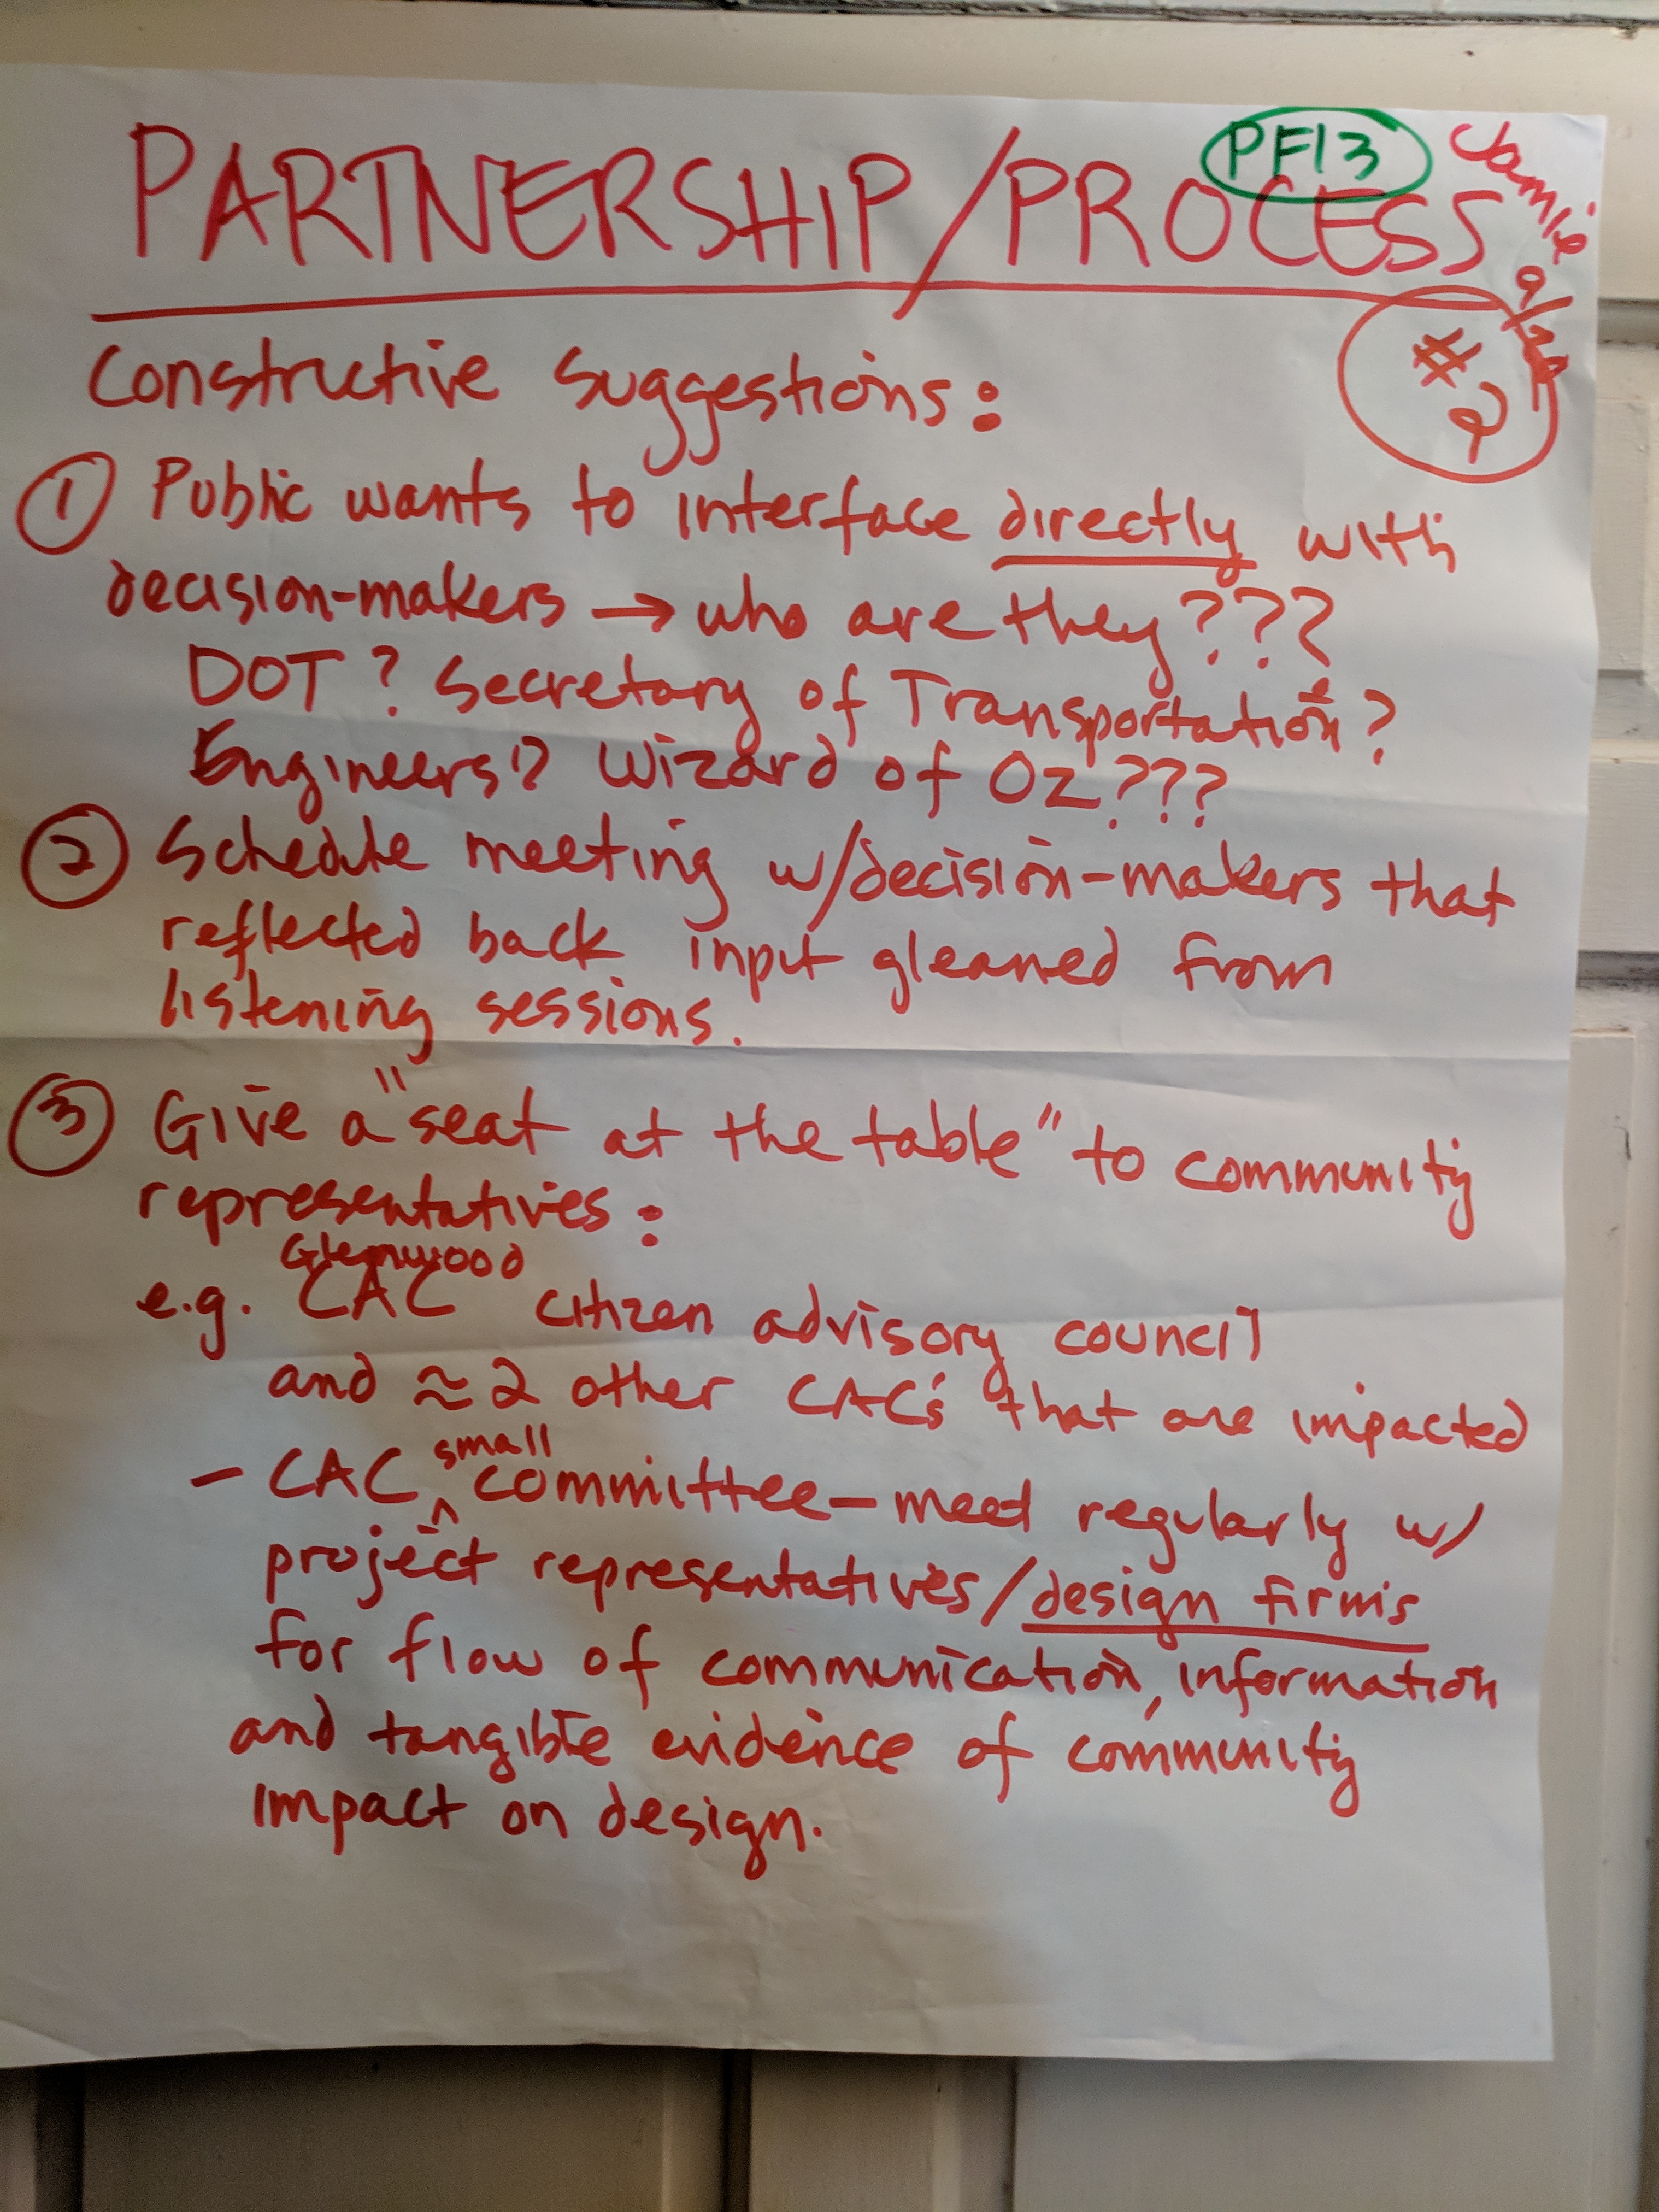 PF13
Jamie
PARTNERSHIP/PROCESS
#2
Constructive suggestions:
① Public wants to interface directly with
decision-makers → who are they???
DOT? Secretary of Transportation?
Engineers? Wizard of Oz???
② Schedule meeting w/decision-makers that
reflected back input gleaned from
listening sessions.
③ Give a "seat at the table" to community
representatives:
Glenwood
e.g. CAC citizen advisory council
and ≈2 other CAC's that are impacted
- CAC ^small committee - meet regularly w/
project representatives/design firms
for flow of communication, information
and tangible evidence of community
impact on design.